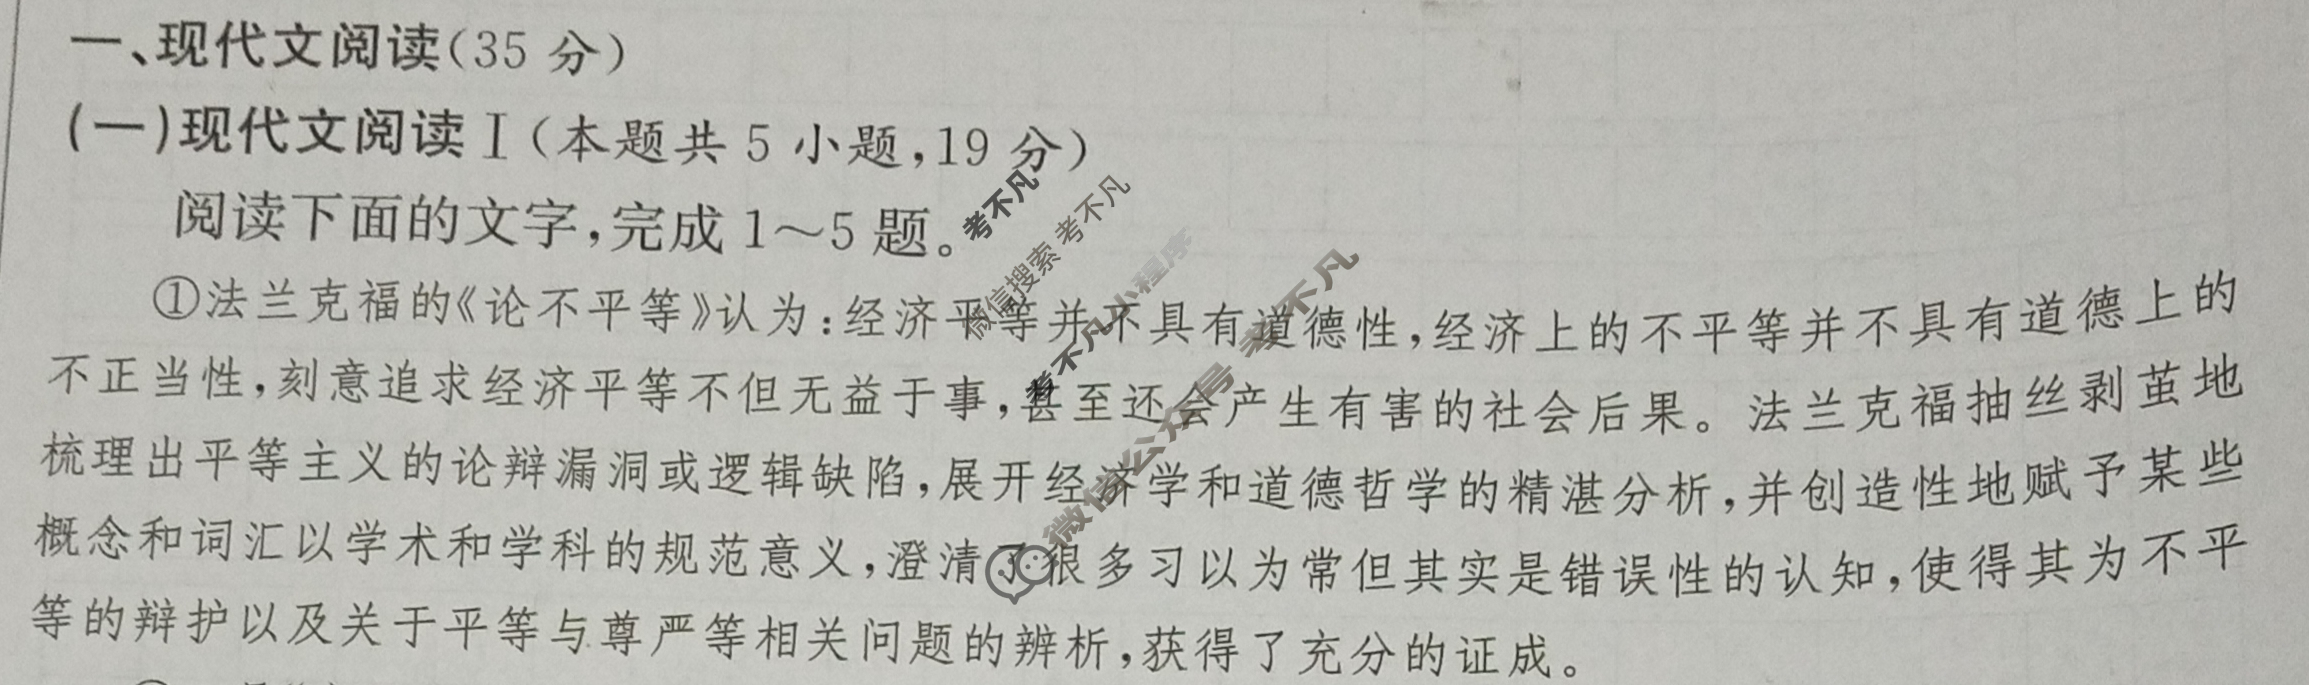 一、现代文阅读(35 分)
(一)现代文阅读Ⅰ(本题共 5 小题,19 分)
阅读下面的文字,完成 1～5 题。
①法兰克福的《论不平等》认为:经济平等并不具有道德性,经济上的不平等并不具有道德上的
不正当性,刻意追求经济平等不但无益于事,甚至还会产生有害的社会后果。法兰克福抽丝剥茧地
梳理出平等主义的论辩漏洞或逻辑缺陷,展开经济学和道德哲学的精湛分析,并创造性地赋予某些
概念和词汇以学术和学科的规范意义,澄清了很多习以为常但其实是错误性的认知,使得其为不平
等的辩护以及关于平等与尊严等相关问题的辨析,获得了充分的证成。
考不凡
微信搜索 考不凡
考不凡小程序
微信公众号 考不凡